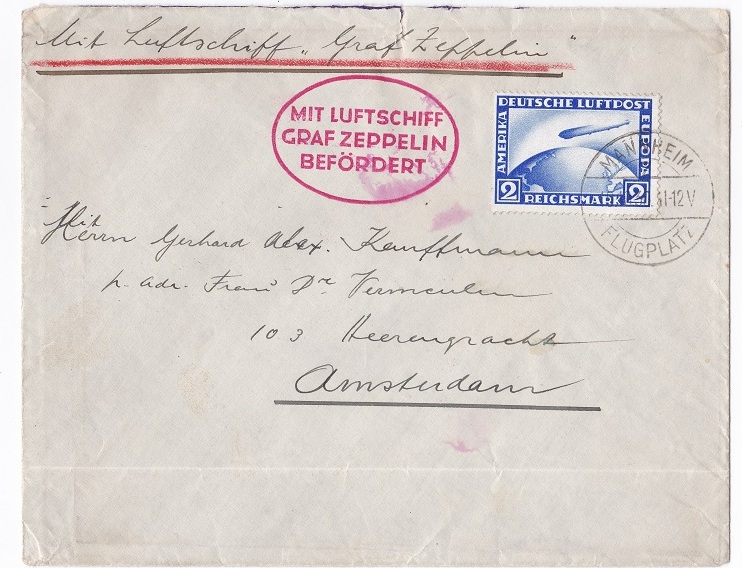 Mit Luftschiff „Graf Zeppelin"
MIT LUFTSCHIFF
GRAF ZEPPELIN
BEFÖRDERT
DEUTSCHE LUFTPOST
AMERIKA
EUROPA
2 REICHSMARK 2
MANNHEIM
31-12V
FLUGPLATZ
Mit
Herrn Gerhard Alex. Kauffmann
p. adr. Frau Dr Vermeulen
103 Heerengracht
Amsterdam